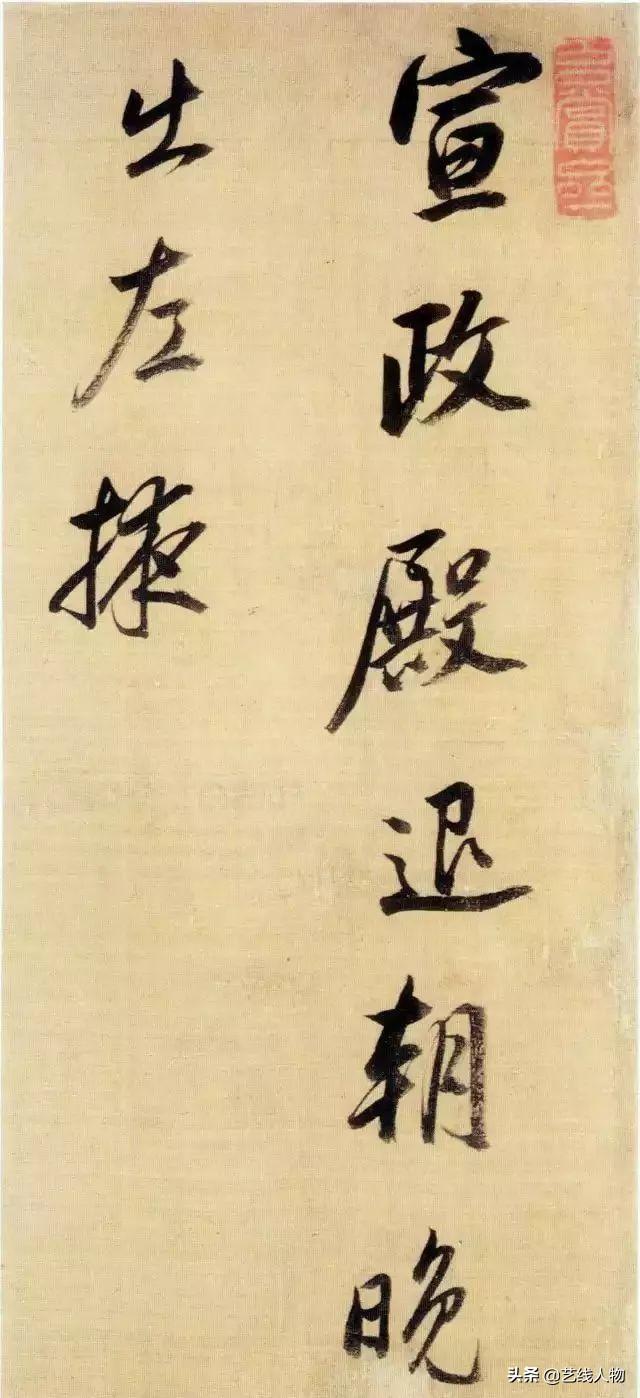 宣政殿退朝晚
出左掖
头条 @艺线人物